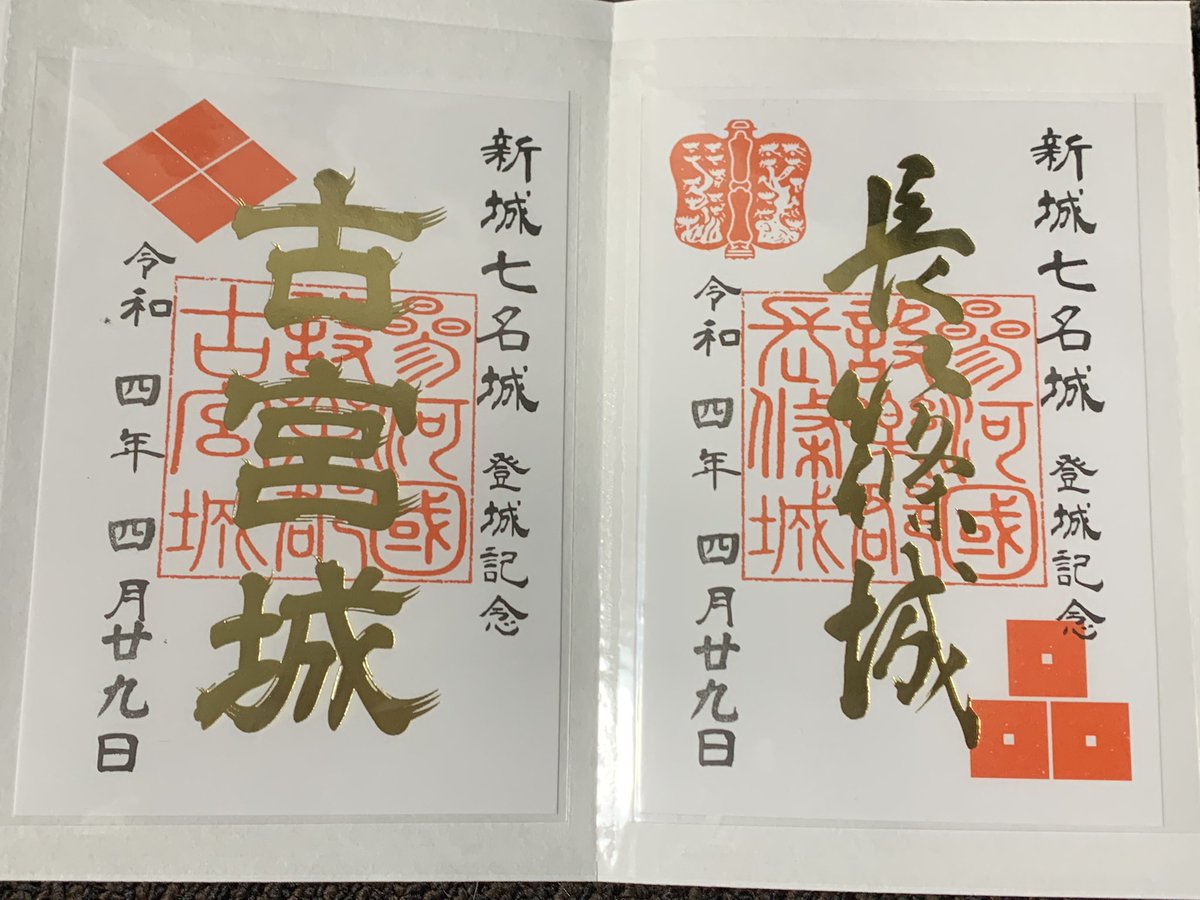 新城七名城 登城記念
長篠城
參河國
設樂郡
令和四年 四月廿九日
新城七名城 登城記念
古宮城
參河國
設樂郡
古宮城
令和四年 四月廿九日